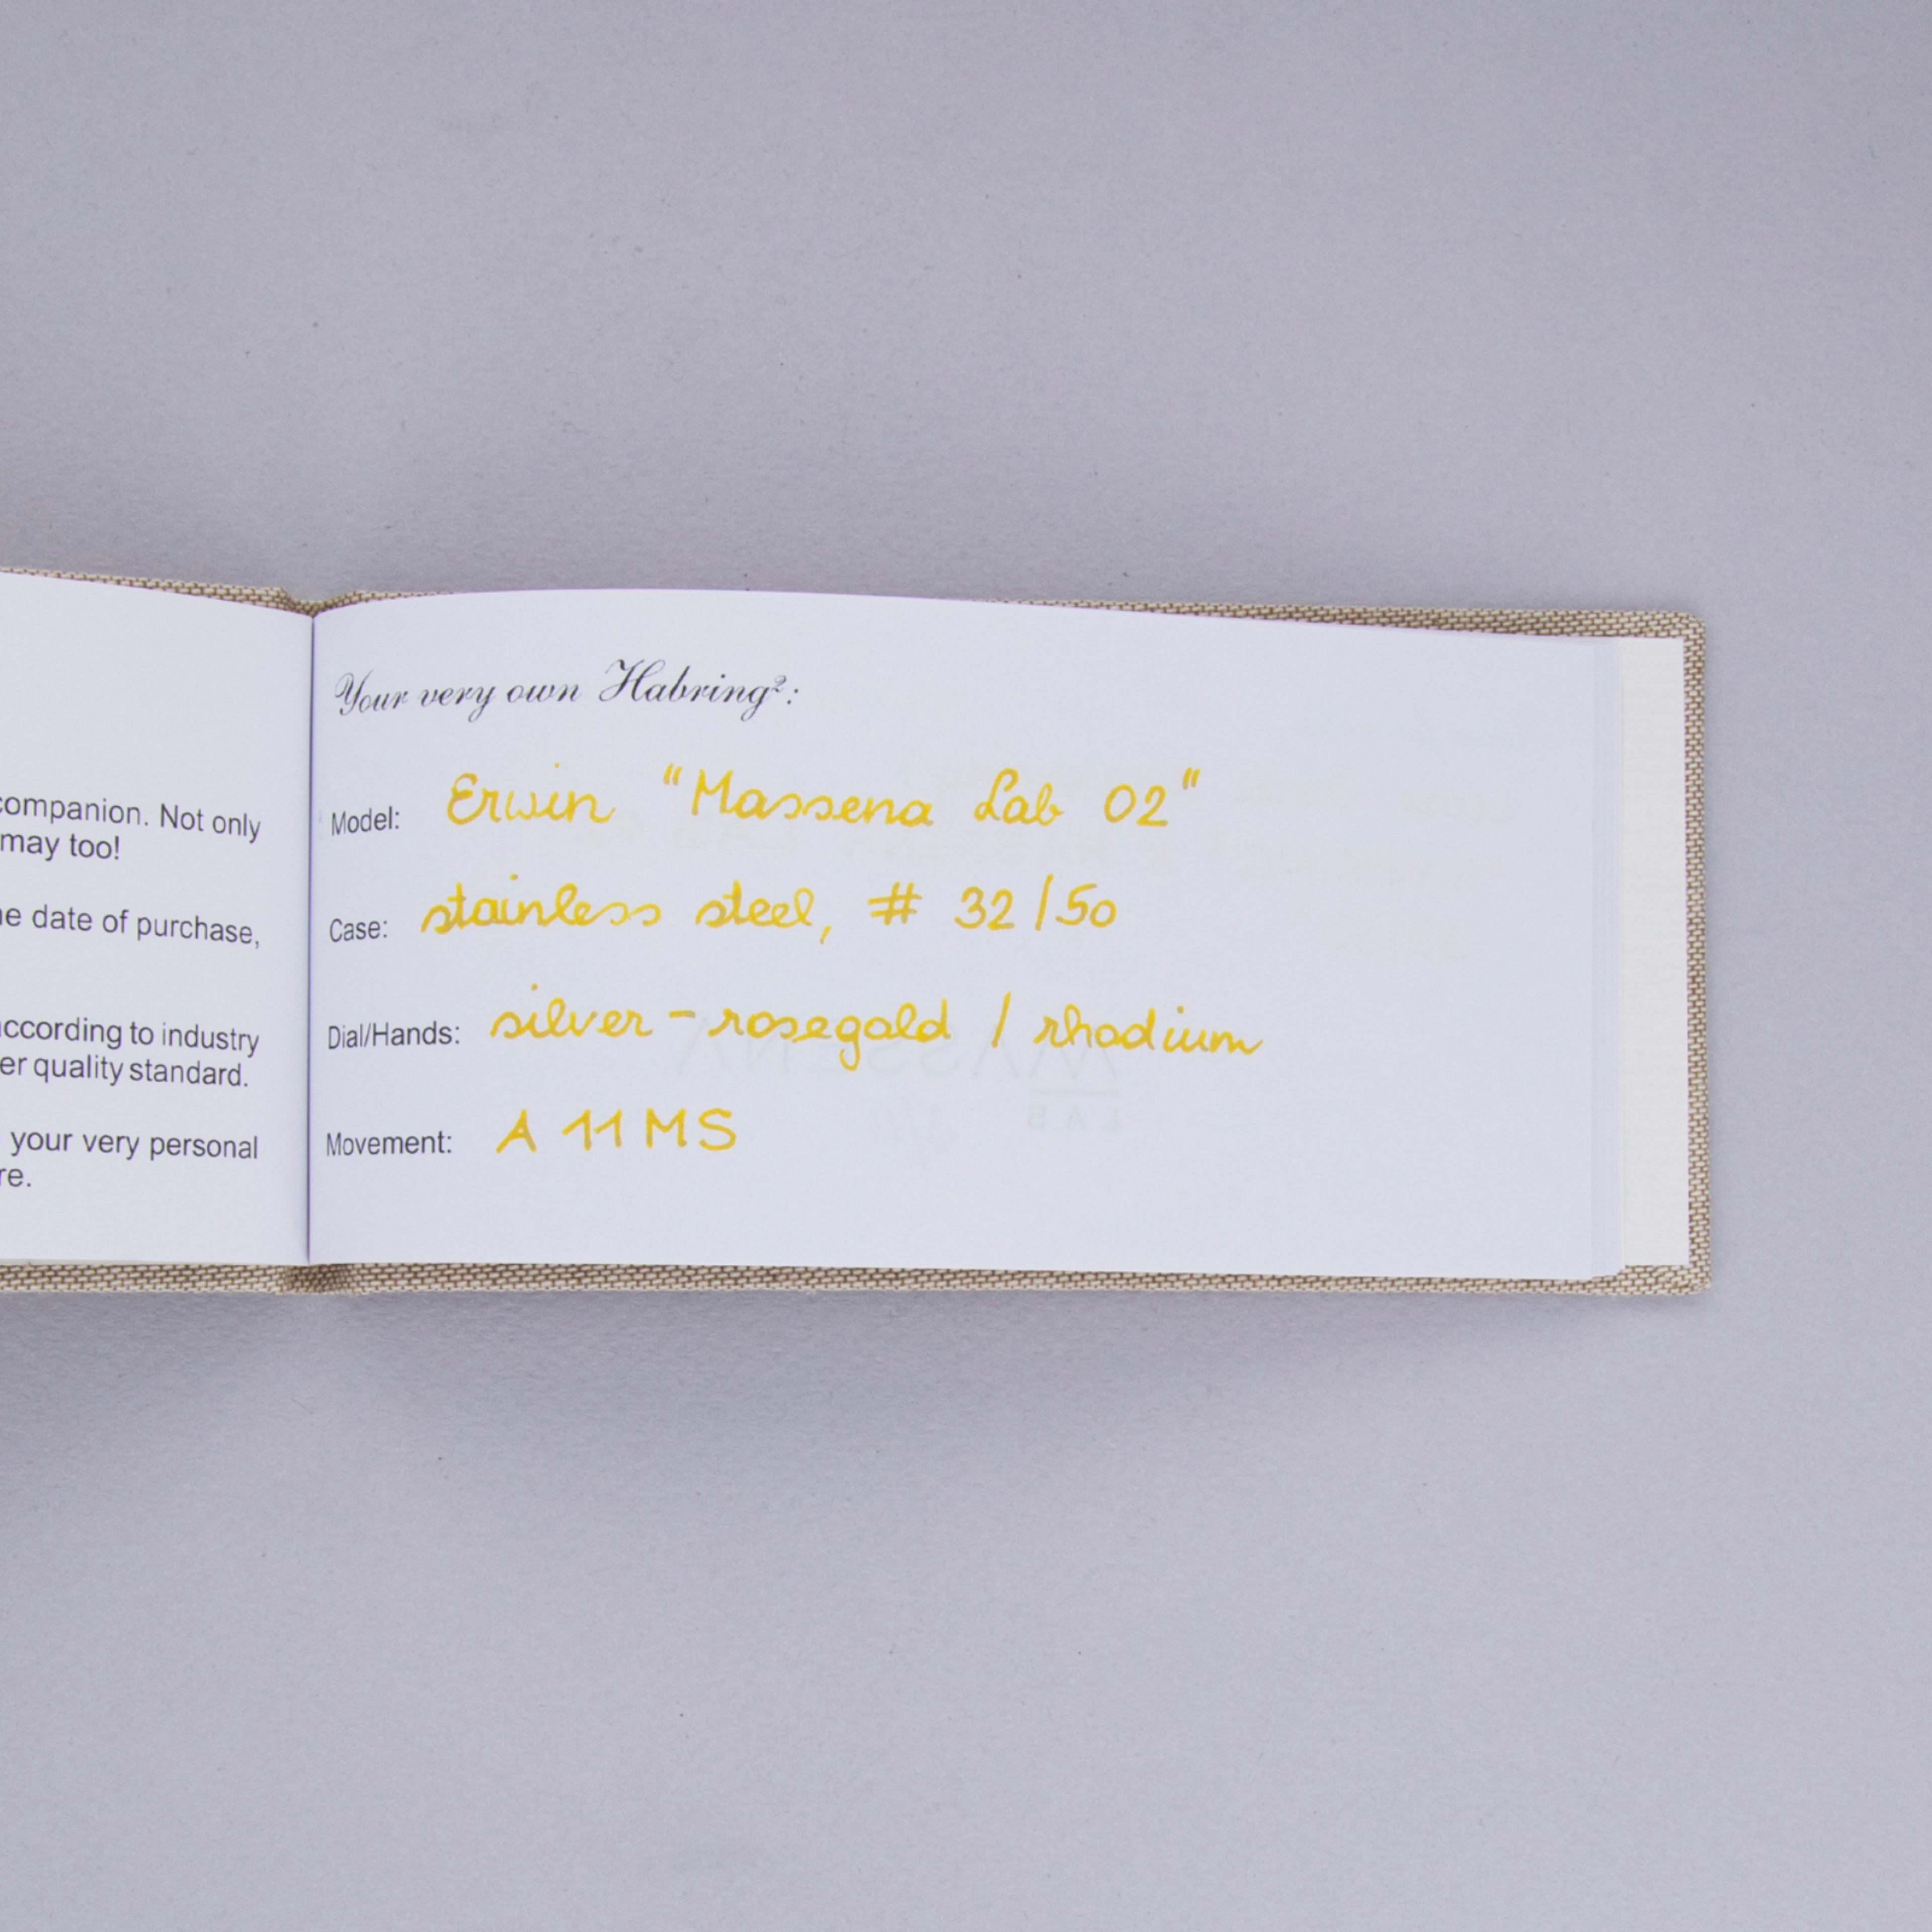 companion. Not only
may too!
date of purchase,
according to industry
quality standard.
your very personal
Your very own Habring²:
Model: Erwin "Massena Lab 02"
Case: stainless steel, # 32/50
Dial/Hands: silver-rosegold / rhodium
Movement: A 11 MS
MASSENA
LAB